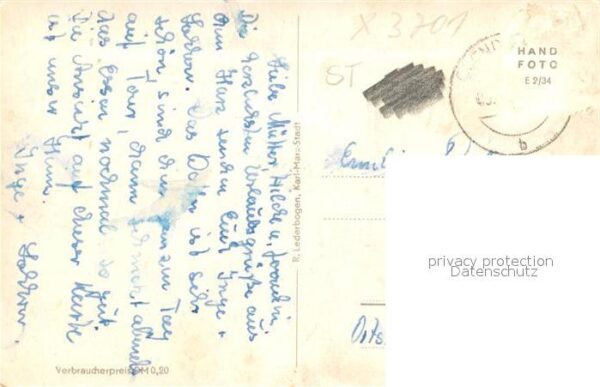 Liebe Mutter, Hilde u. Familie,
Die herzlichsten Urlaubsgrüße aus
dem Harz senden Euch Inge +
Lothar. Das Wetter ist sehr
schön, sind den ganzen Tag
auf Tour, dann schmeckt abends
das Essen nochmal so gut.
Die Ansicht auf dieser Karte
ist unser Heim.
Inge + Lothar.
Verbraucherpreis DM 0,20
R. Lederbogen, Karl-Marx-Stadt
X 3701
ST
HAND
FOTO
E 2/34
b
Familie
privacy protection
Datenschutz
Orts